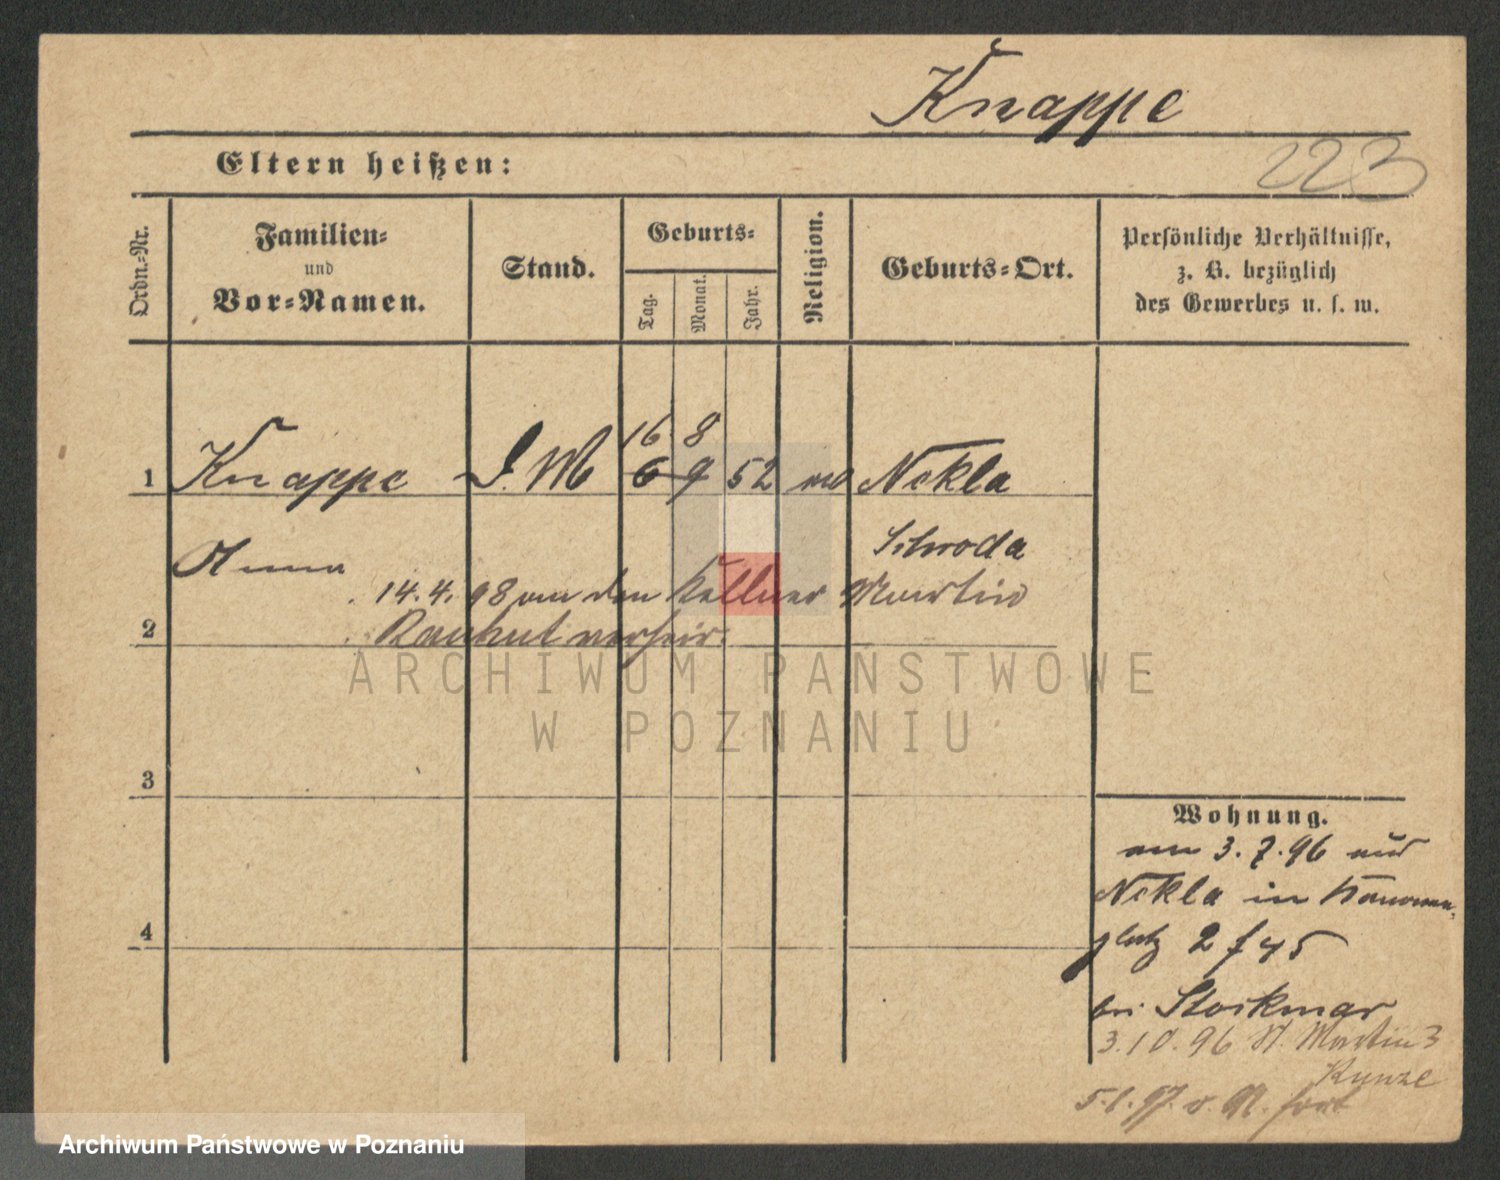 Knappe
223
Eltern heißen:
Ordn.-Nr.
Familien-
und
Vor-Namen.
Stand.
Geburts-
Tag.
Monat.
Jahr.
Religion.
Geburts-Ort.
Persönliche Verhältnisse,
z. B. bezüglich
des Gewerbes u. s. w.
16 8
1 Knappe D.M 6 9 52 Nekla
Schroda
Anna
14.4.98 an den Kellner Martin
2 Rauhut verheir.
ARCHIWUM PAŃSTWOWE
W POZNANIU
3
4
Wohnung.
am 3.7.96 aus
Nekla in Kanonen
platz 2 f 45
bei Stockmar
3.10.96 St. Martin 3
Kunze
5.1.97 v. N. fort
Archiwum Państwowe w Poznaniu